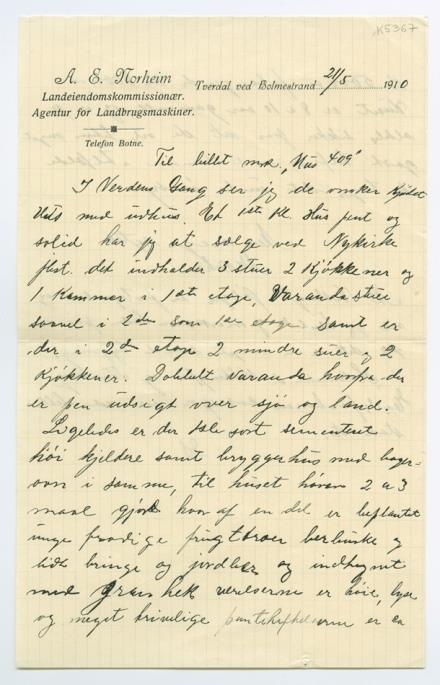 K5367
A. E. Norheim
Landeiendomskommissionær.
Agentur for Landbrugsmaskiner.
Telefon Botne.
Tverdal ved Holmestrand 21/5 1910
Til billet mrk „Hus 409"
I Verdens Gang ser jeg de ønsker Kjødet
Hus med udhus. Et 1ste Kl. Hus pent og
solid har jeg at sælge ved Nykirke
st. det indholder 3 stuer 2 Kjøkkener og
1 Kammer i 1ste etage, Varanda stue
saavel i 2den som 1ste etage samt er
der i 2den etage 2 mindre stuer og 2
Kjøkkener. Dobbelt varanda hvorfra der
er pen udsigt over sjø og land.
Ligeledes er der 1ste sort sementeret
høi kjeldere samt bryggerhus med bager=
ovn i samme, til huset hører 2 a 3
maal gjord hvor af en del er beplantet
unge frodige frugttræer berbuske og
lidt bringe og jordbær og indhegnet
med gran hek værelserne er høie, lyse
og meget trivelige er ca